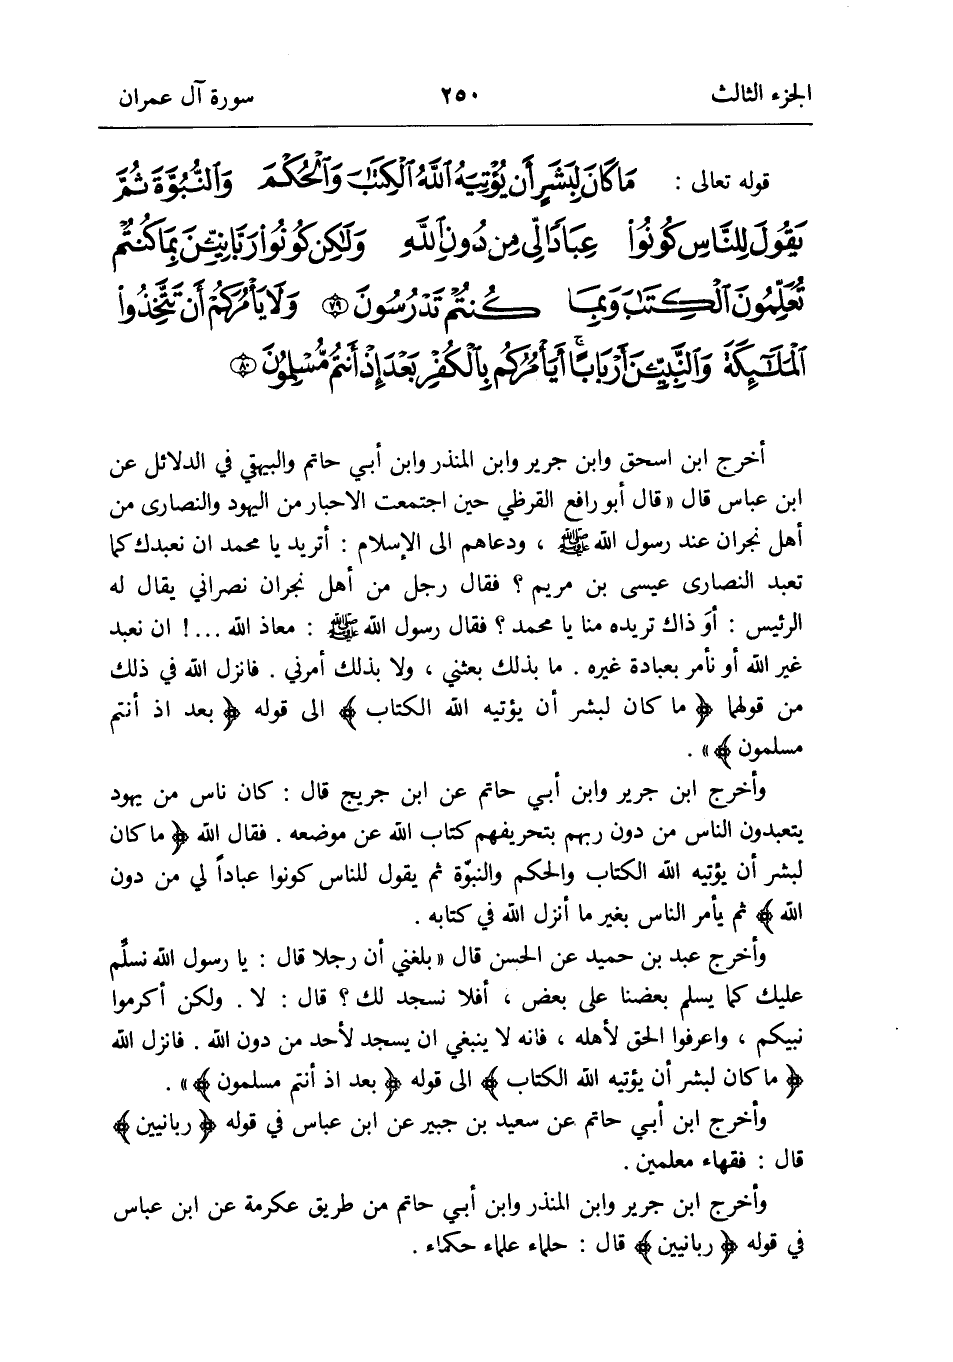 الجزء الثالث ٢٥٠ سورة آل عمران
قوله تعالى : مَا كَانَ لِبَشَرٍ أَن يُؤْتِيَهُ ٱللَّهُ ٱلْكِتَٰبَ وَٱلْحُكْمَ وَٱلنُّبُوَّةَ ثُمَّ
يَقُولَ لِلنَّاسِ كُونُوا۟ عِبَادًا لِّى مِن دُونِ ٱللَّهِ وَلَٰكِن كُونُوا۟ رَبَّٰنِيِّـۧنَ بِمَا كُنتُمْ
تُعَلِّمُونَ ٱلْكِتَٰبَ وَبِمَا كُنتُمْ تَدْرُسُونَ ﴿٧٩﴾ وَلَا يَأْمُرَكُمْ أَن تَتَّخِذُوا۟
ٱلْمَلَٰٓئِكَةَ وَٱلنَّبِيِّـۧنَ أَرْبَابًا ۚ أَيَأْمُرُكُم بِٱلْكُفْرِ بَعْدَ إِذْ أَنتُم مُّسْلِمُونَ ﴿٨٠﴾
أخرج ابن اسحق وابن جرير وابن المنذر وابن أبي حاتم والبيهقي في الدلائل عن
ابن عباس قال « قال أبو رافع القرظي حين اجتمعت الاحبار من اليهود والنصارى من
أهل نجران عند رسول الله ﷺ ، ودعاهم الى الإسلام : أتريد يا محمد ان نعبدك كما
تعبد النصارى عيسى بن مريم ؟ فقال رجل من أهل نجران نصراني يقال له
الرئيس : أوَ ذاك تريده منا يا محمد ؟ فقال رسول الله ﷺ : معاذ الله ...! ان نعبد
غير الله أو نأمر بعبادة غيره . ما بذلك بعثني ، ولا بذلك أمرني . فانزل الله في ذلك
من قولهما ﴿ ما كان لبشر أن يؤتيه الله الكتاب ﴾ الى قوله ﴿ بعد اذ أنتم
مسلمون ﴾ » .
وأخرج ابن جرير وابن أبي حاتم عن ابن جريج قال : كان ناس من يهود
يتعبدون الناس من دون ربهم بتحريفهم كتاب الله عن موضعه . فقال الله ﴿ ما كان
لبشر أن يؤتيه الله الكتاب والحكم والنبوّة ثم يقول للناس كونوا عباداً لي من دون
الله ﴾ ثم يأمر الناس بغير ما أنزل الله في كتابه .
وأخرج عبد بن حميد عن الحسن قال « بلغني أن رجلا قال : يا رسول الله نسلِّم
عليك كما يسلم بعضنا على بعض ، أفلا نسجد لك ؟ قال : لا . ولكن أكرموا
نبيكم ، واعرفوا الحق لأهله ، فانه لا ينبغي ان يسجد لأحد من دون الله . فانزل الله
﴿ ما كان لبشر أن يؤتيه الله الكتاب ﴾ الى قوله ﴿ بعد اذ أنتم مسلمون ﴾ » .
وأخرج ابن أبي حاتم عن سعيد بن جبير عن ابن عباس في قوله ﴿ ربانيين ﴾
قال : فقهاء معلمين .
وأخرج ابن جرير وابن المنذر وابن أبي حاتم من طريق عكرمة عن ابن عباس
في قوله ﴿ ربانيين ﴾ قال : حلماء علماء حكماء .